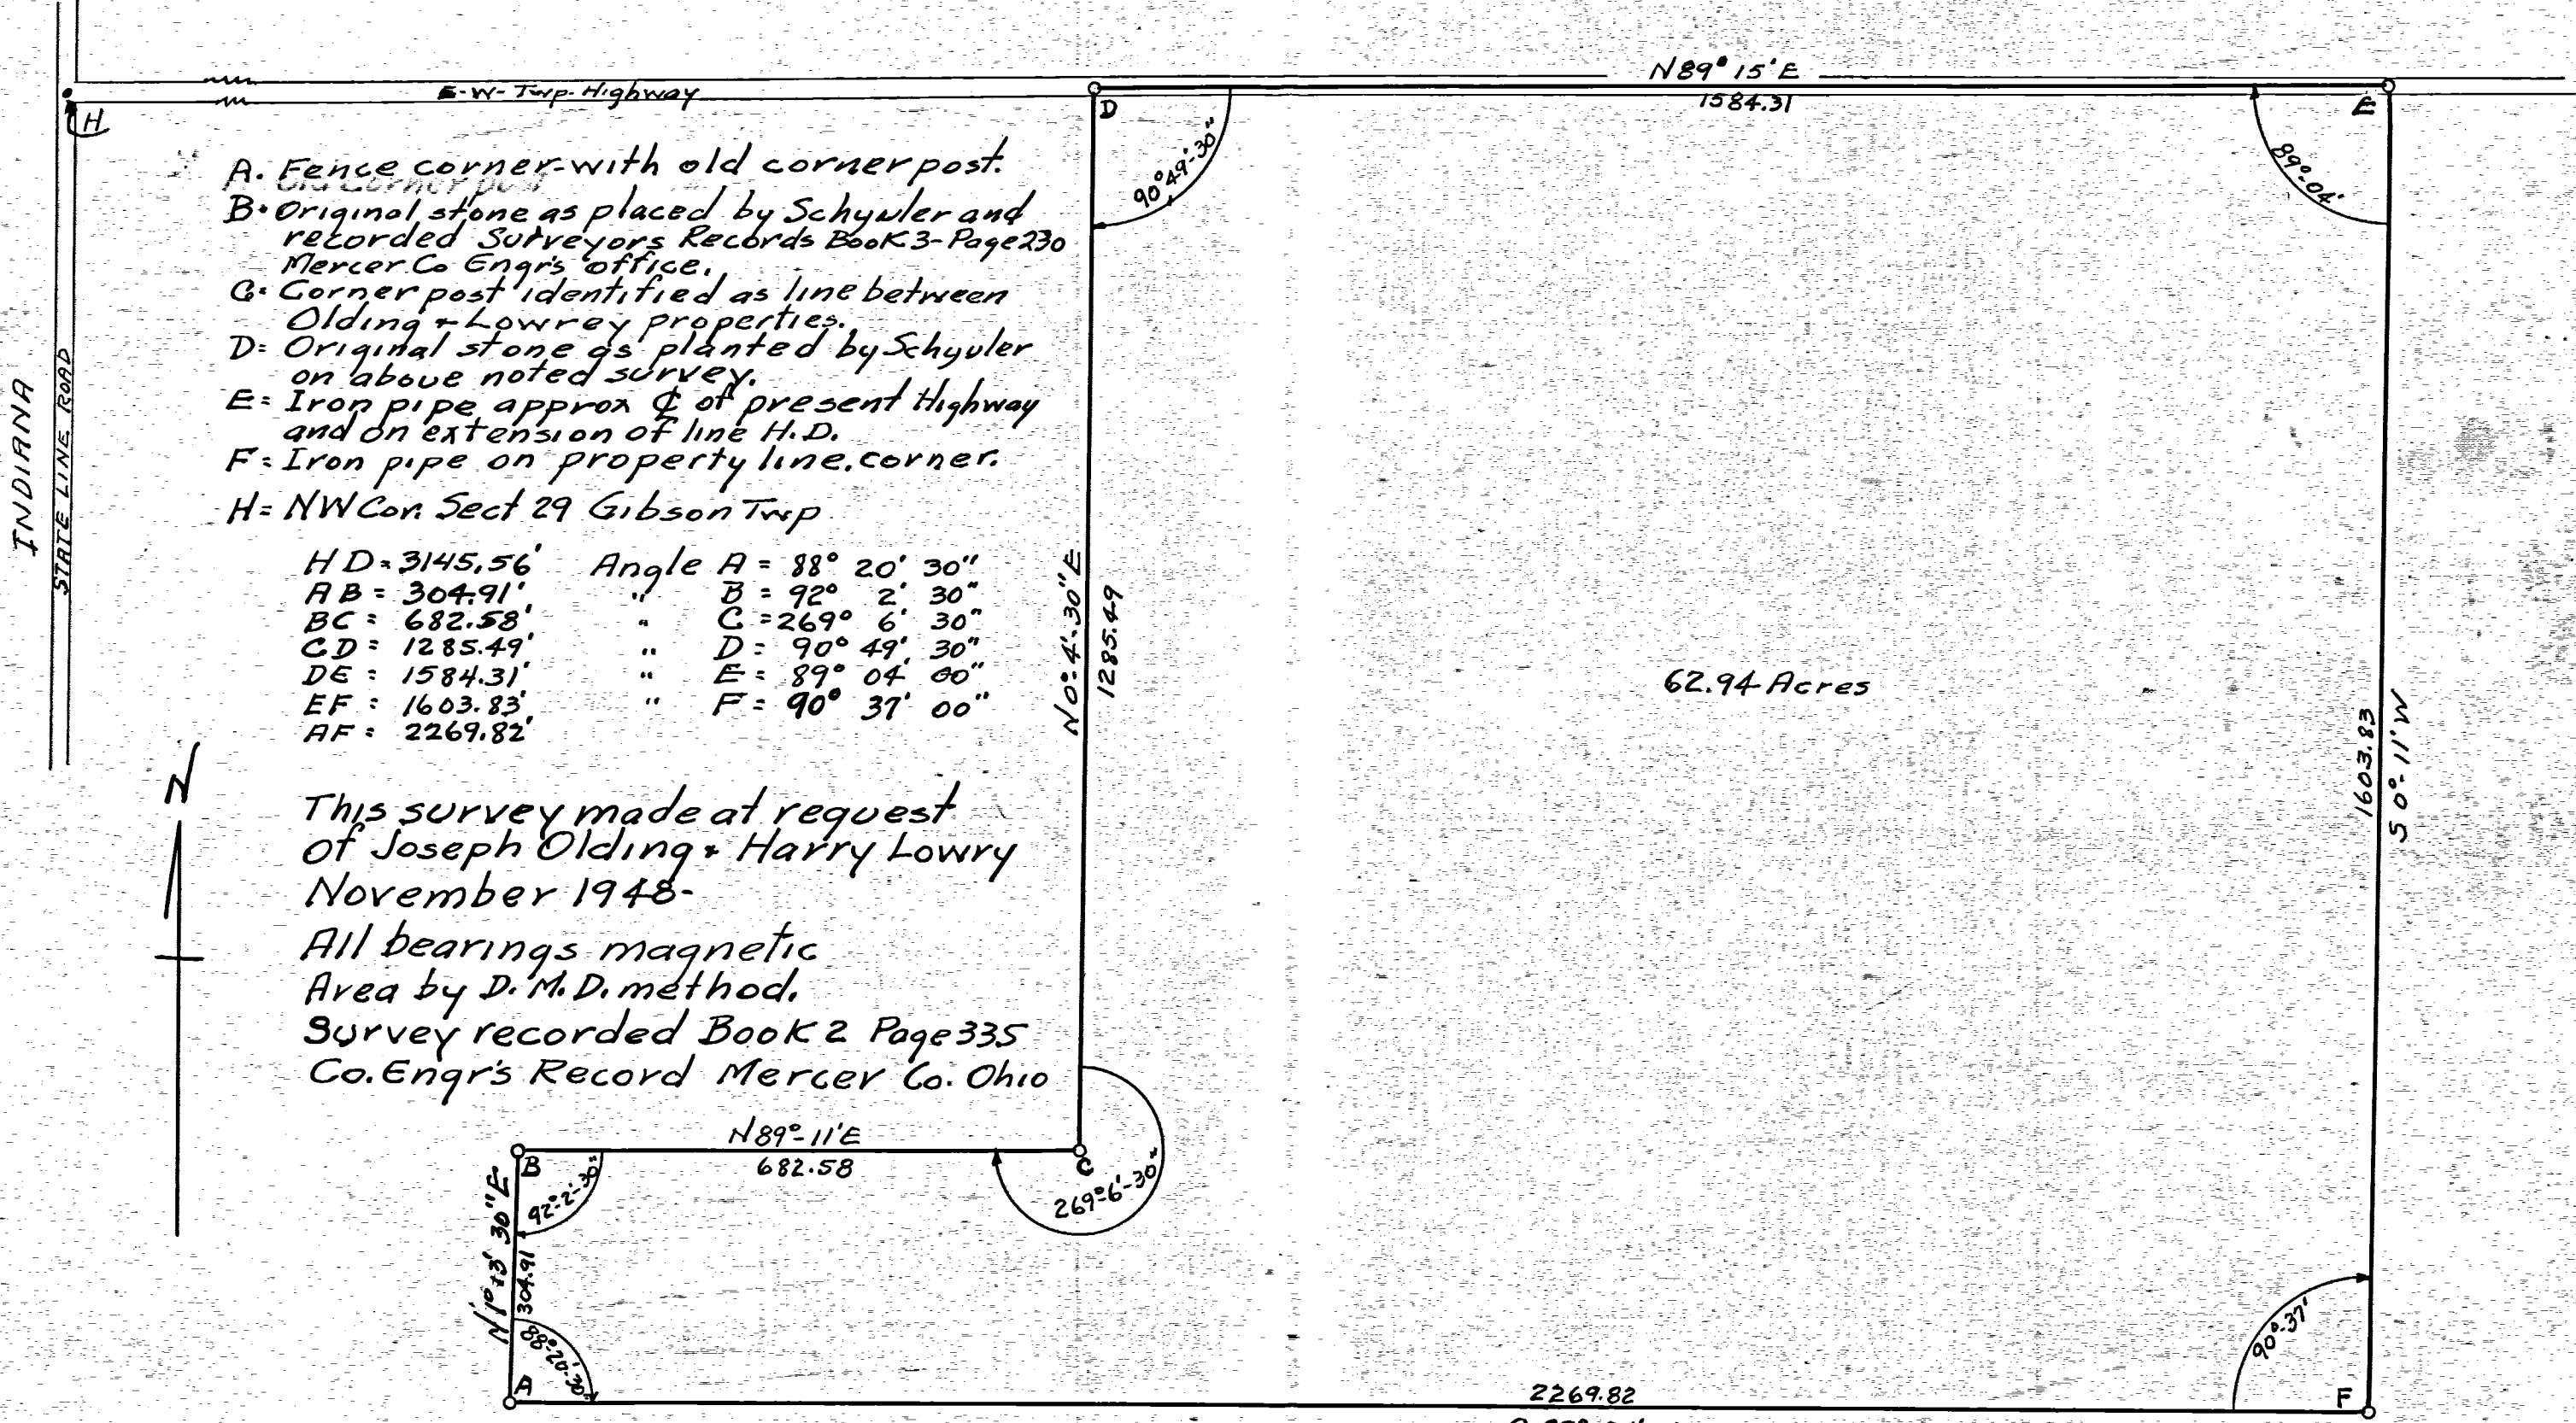 INDIANA
STATE LINE ROAD
H
E-W-Twp-Highway
D
N89° 15' E
1584.31
E
90°49'-30"
89°-04'
A. Fence corner-with old corner post.
B. Original stone as placed by Schywler and
recorded Surveyors Records Book 3-Page 230
Mercer Co Engr's office.
C. Corner post identified as line between
Olding + Lowrey properties.
D= Original stone as planted by Schyuler
on above noted survey.
E= Iron pipe approx ℄ of present Highway
and on extension of line H.D.
F= Iron pipe on property line. corner.
H= NW Cor. Sect 29 Gibson Twp
HD = 3145.56' Angle A = 88° 20' 30"
AB = 304.91' " B = 92° 2' 30"
BC = 682.58' " C = 269° 6' 30"
CD = 1285.49' " D = 90° 49' 30"
DE = 1584.31' " E = 89° 04' 00"
EF = 1603.83' " F = 90° 37' 00"
AF = 2269.82'
N0°-4'-30"E
1285.49
62.94 Acres
1603.83
S 0°-11' W
N
This survey made at request
of Joseph Olding + Harry Lowry
November 1948-
All bearings magnetic
Area by D.M.D. method.
Survey recorded Book 2 Page 335
Co. Engr's Record Mercer Co. Ohio
N89°-11'E
682.58
B
C
92°-2'-30"
269°-6'-30"
N1°13' 30"E
304.91
88°-20'-30"
A
90°-37'
2269.82
F